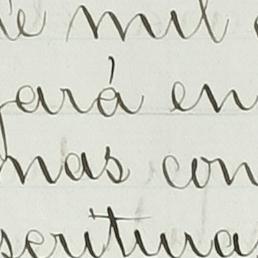 de mil
gará en
mas con
scritura